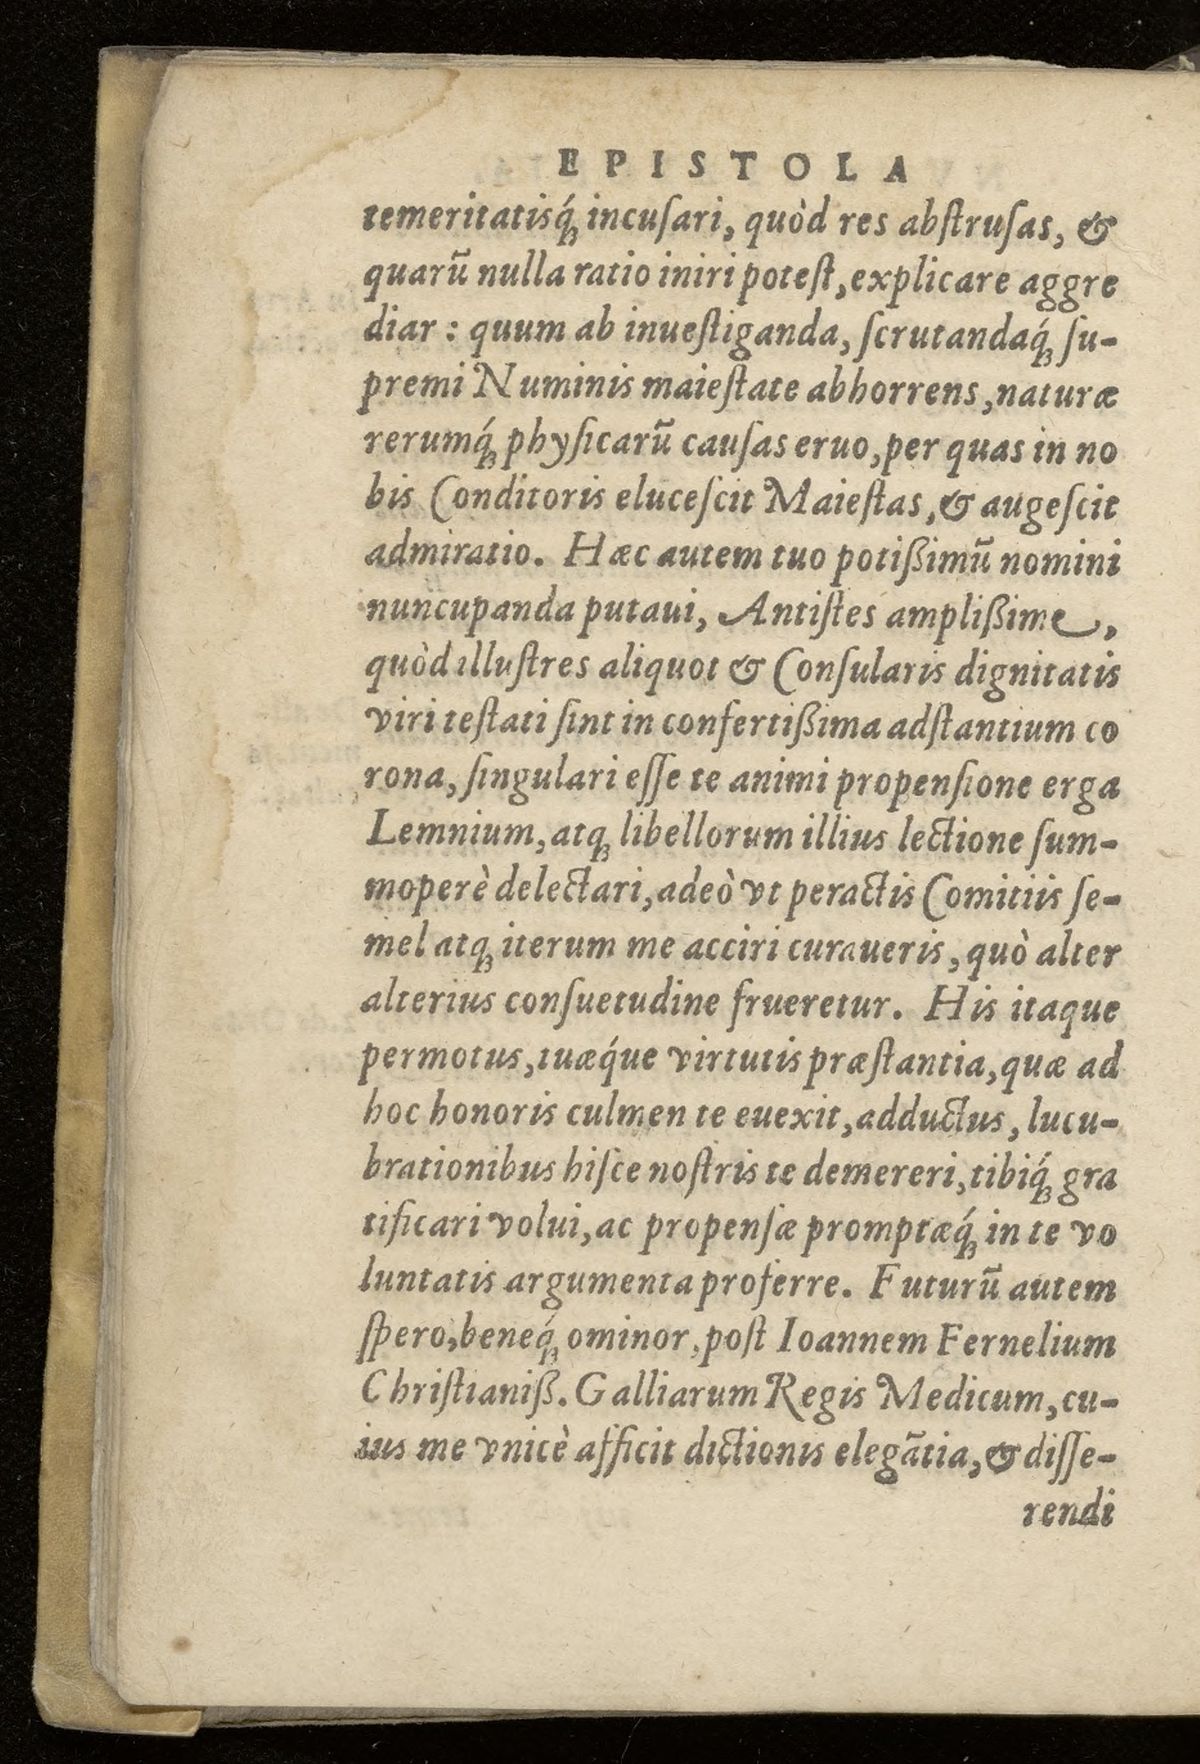 EPISTOLA
temeritatisq́ꝫ incuſari, quòd res abſtruſas, &
quarū nulla ratio iniri poteſt, explicare aggre
diar : quum ab inueſtiganda, ſcrutandaq́ꝫ ſu-
premi Numinis maieſtate abhorrens, naturæ
rerumq́ꝫ phyſicarū cauſas eruo, per quas in no
bis Conditoris eluceſcit Maieſtas, & augeſcit
admiratio. Hæc autem tuo potißimū nomini
nuncupanda putaui, Antiſtes amplißime,
quòd illuſtres aliquot & Conſularis dignitatis
viri teſtati ſint in confertißima adſtantium co
rona, ſingulari eſſe te animi propenſione erga
Lemnium, atqꝫ libellorum illius lectione ſum-
moperè delectari, adeò vt peractis Comitiis ſe-
mel atqꝫ iterum me acciri curaueris, quò alter
alterius conſuetudine frueretur. His itaque
permotus, tuæq́ue virtutis præſtantia, quæ ad
hoc honoris culmen te euexit, adductus, lucu-
brationibus hiſce noſtris te demereri, tibiq́ꝫ gra
tificari volui, ac propenſæ promptæq́ꝫ in te vo
luntatis argumenta proferre. Futurū autem
ſpero, beneq́ꝫ ominor, poſt Ioannem Fernelium
Chriſtianiß. Galliarum Regis Medicum, cu-
ius me vnicè afficit dictionis elegātia, & diſſe-
rendi